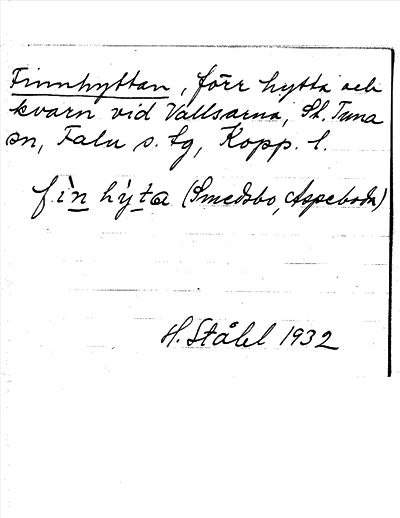 Finnhyttan, förr hytta och
kvarn vid Vallsarna, St. Tuna
sn, Falu s. tg, Kopp. l.
fìn hýta (Smedsbo, Aspeboda)
H. Ståhl 1932